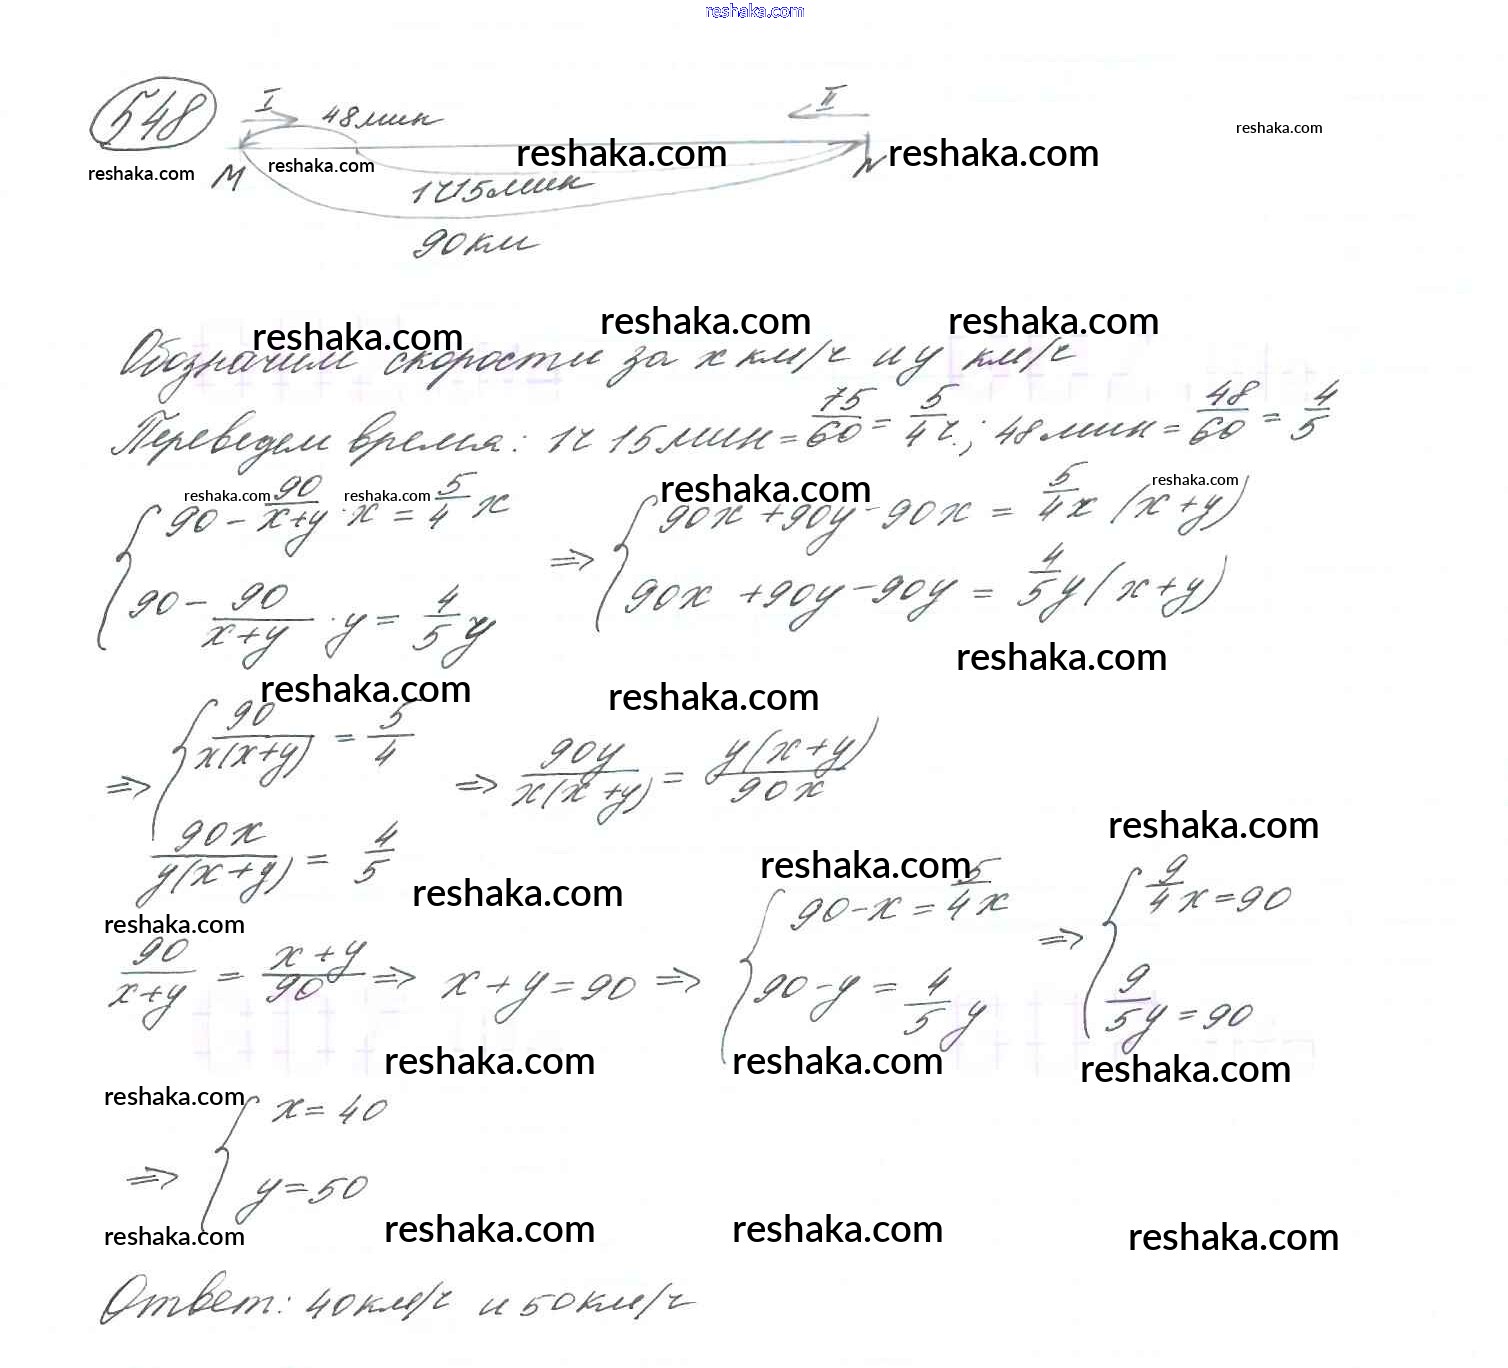 reshaka.com
548
I 48 мин II
reshaka.com reshaka.com reshaka.com reshaka.com reshaka.com
M N
1ч 15 мин
90 км
reshaka.com reshaka.com reshaka.com
Обозначим скорости за x км/ч и y км/ч
Переведем время: 1ч 15 мин = 75/60 = 5/4 ч.; 48 мин = 48/60 = 4/5
reshaka.com reshaka.com reshaka.com reshaka.com
{ 90 - 90/(x+y) · x = 5/4 x ⇒ { 90x + 90y - 90x = 5/4 x (x+y)
90 - 90/(x+y) · y = 4/5 y 90x + 90y - 90y = 4/5 y (x+y)
reshaka.com
reshaka.com reshaka.com
⇒ { 90/(x(x+y)) = 5/4 ⇒ 90y/(x(x+y)) = y(x+y)/(90x)
90x/(y(x+y)) = 4/5
reshaka.com reshaka.com reshaka.com
reshaka.com
90/(x+y) = (x+y)/90 ⇒ x + y = 90 ⇒ { 90 - x = 5/4 x ⇒ { 9/4 x = 90
90 - y = 4/5 y 9/5 y = 90
reshaka.com reshaka.com reshaka.com
reshaka.com
⇒ { x = 40
y = 50
reshaka.com reshaka.com reshaka.com reshaka.com
Ответ: 40 км/ч и 50 км/ч